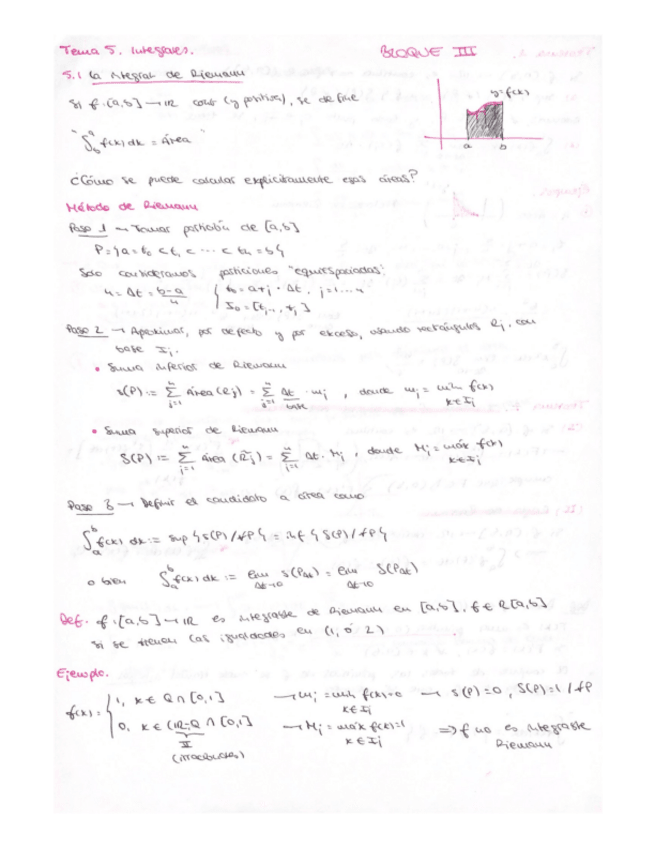 Tema 5. Integrales. BLOQUE III
5.1 La integral de Riemann
Si f: [a,b] → ℝ cont (y positiva), se define
y=f(x)
"∫_b^a f(x) dx = Área"
a b
¿Cómo se puede calcular explícitamente esas áreas?
Método de Riemann
Paso 1 → Tomar partición de [a,b]
P = {a = t₀ < t₁ < ... < tₙ = b}
Solo consideramos particiones "equiespaciadas"
Δt = (b-a)/n { = a + j · Δt, j=1...n
Paso 2 → Aproximar, por defecto y por exceso, usando rectángulos Rj, con
base Ij.
• Suma inferior de Riemann
s(P) := Σ_{j=1}^n Área(Rj) = Σ_{j=1}^n Δt · mj, donde mj = mín f(x)
base x∈Ij
• Suma superior de Riemann
S(P) := Σ_{j=1}^n Área(R̃j) = Σ_{j=1}^n Δt · Mj, donde Mj = máx f(x)
x∈Ij
Paso 3 → Definir el candidato a área como
∫_a^b f(x) dx := sup {s(P) / ∀P} = inf {S(P) / ∀P}
o bien ∫_a^b f(x) dx := lim_{Δt→0} s(P_Δt) = lim_{Δt→0} S(P_Δt)
Def. f: [a,b] → ℝ es integrable de Riemann en [a,b], f ∈ R[a,b]
si se tienen las igualdades en (1, ó 2)
Ejemplo.
f(x) = { 1, x ∈ Q ∩ [0,1] → mj = mín f(x) = 0 → s(P) = 0, S(P) = 1 / ∀P
x∈Ij
0, x ∈ (ℝ-Q ∩ [0,1] → Mj = máx f(x) = 1 ⇒ f no es integrable
x∈Ij Riemann
II
(irracionales)